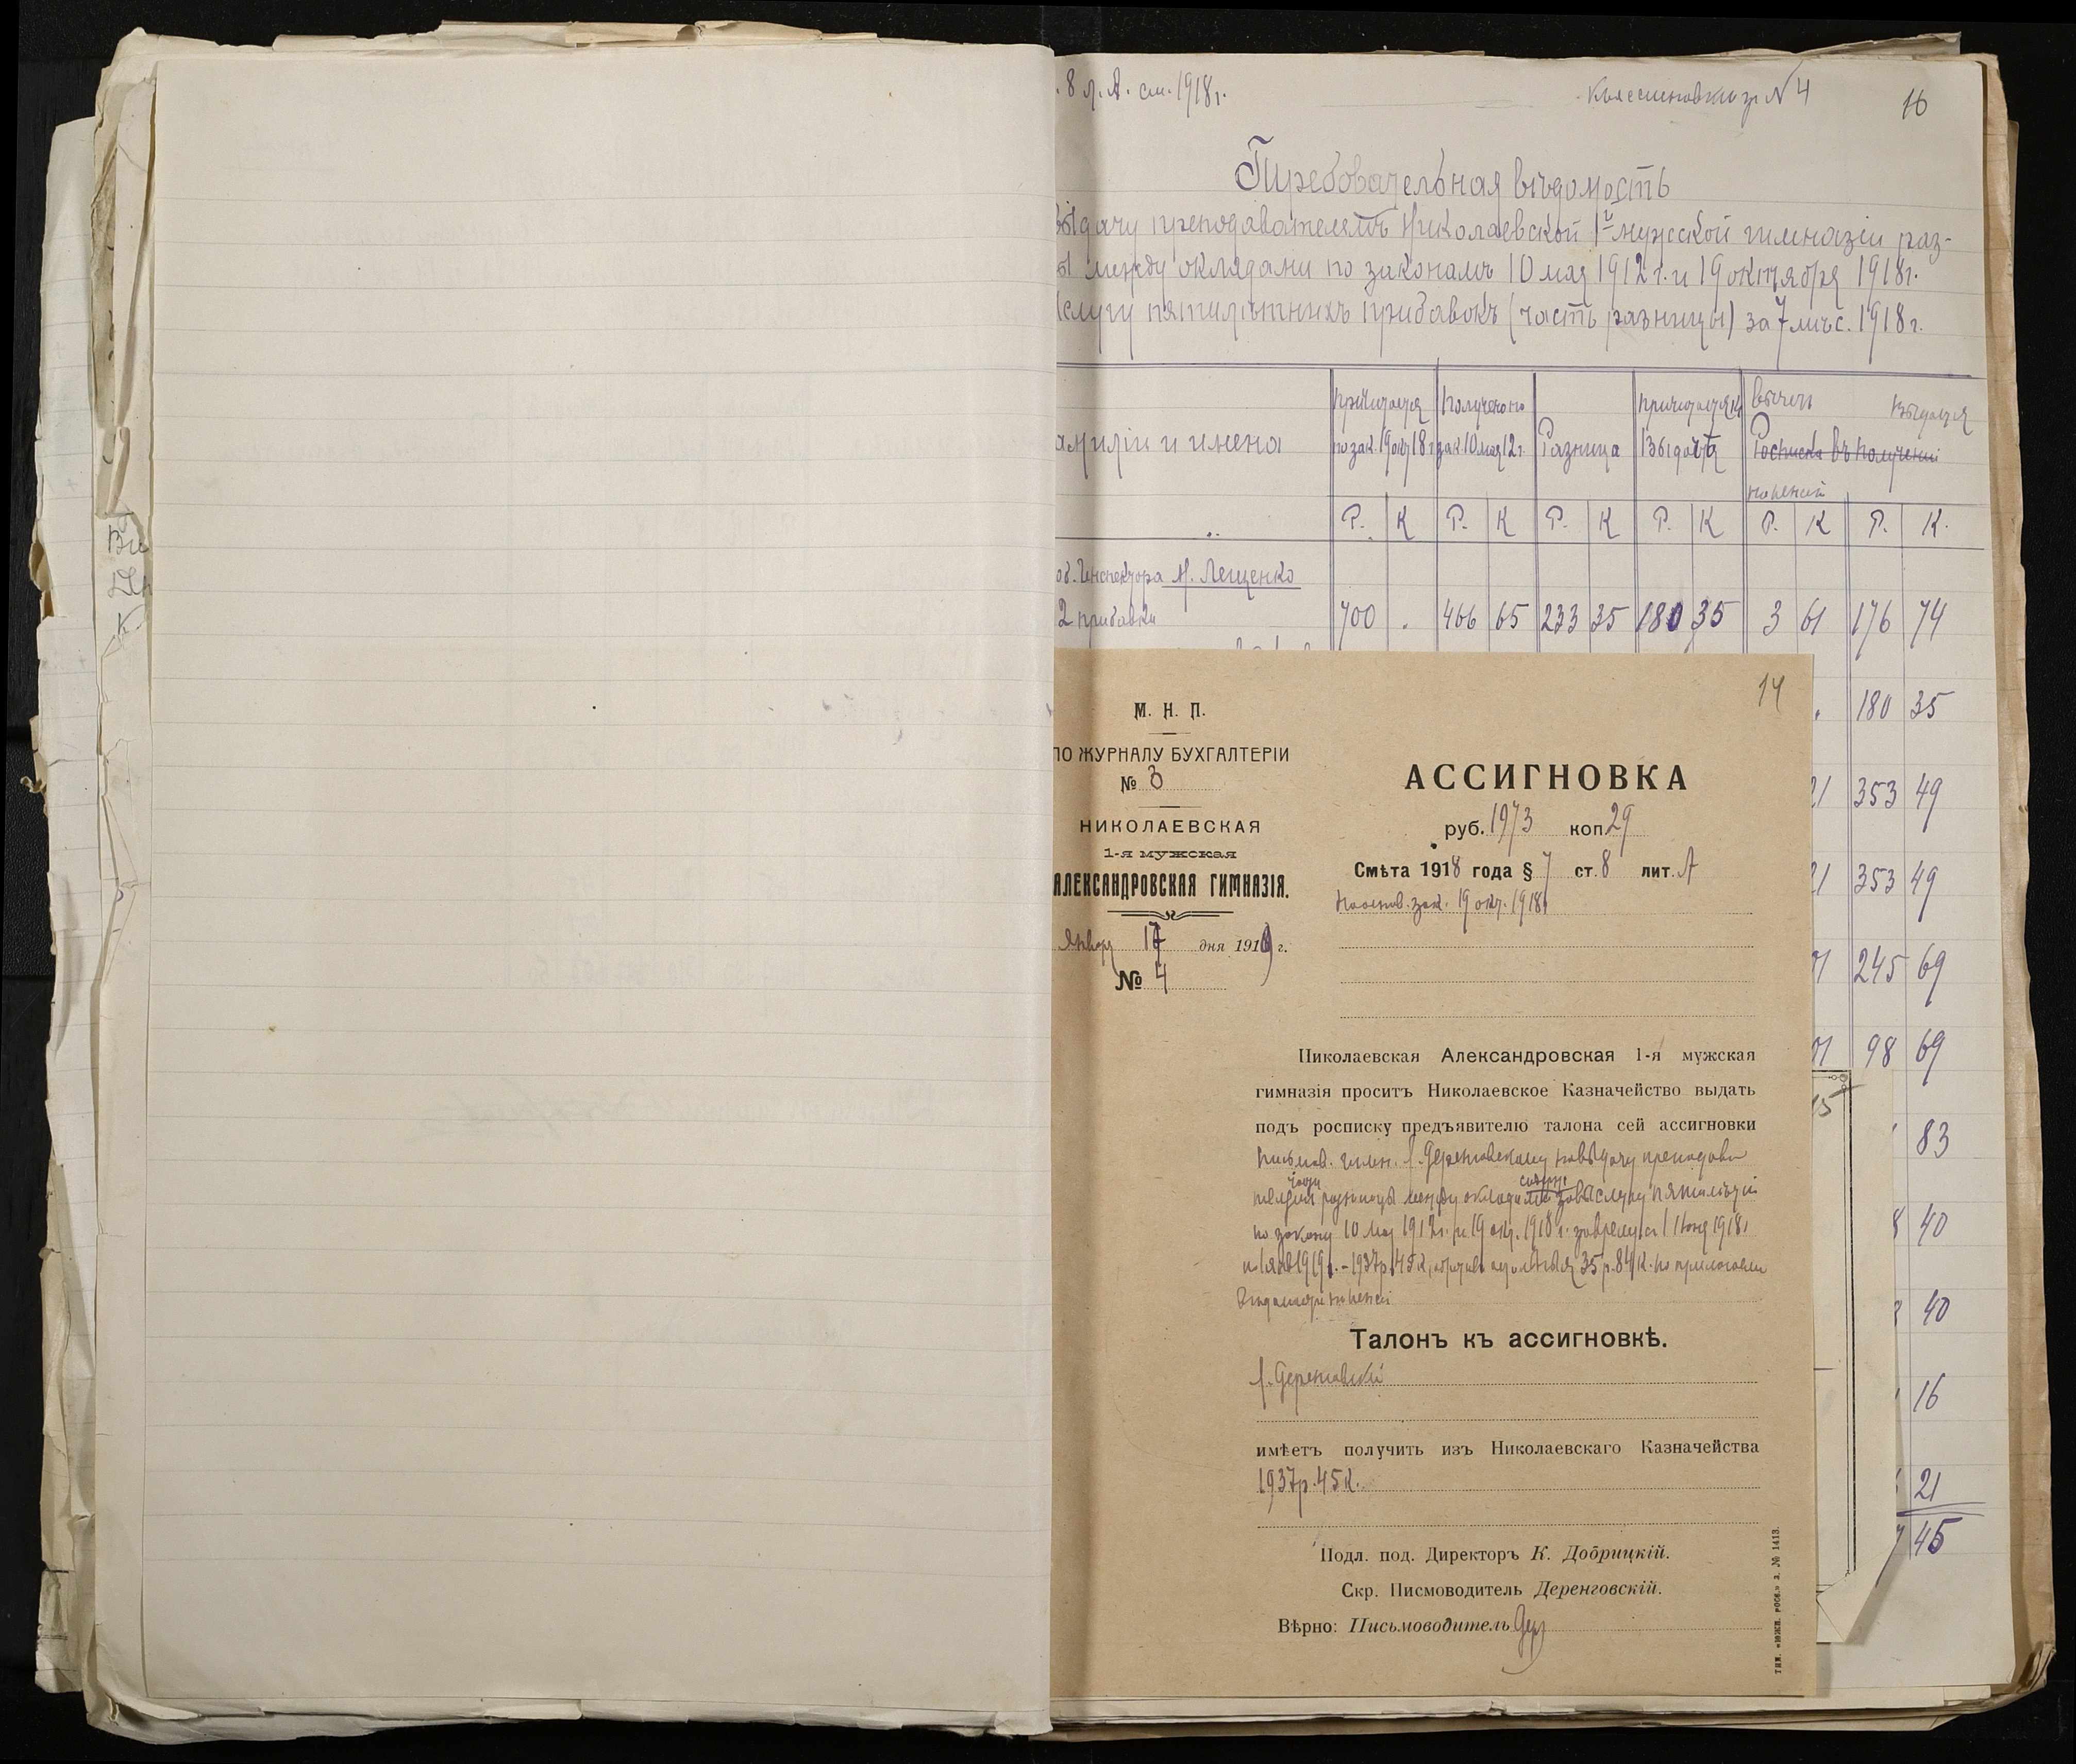 Ви
К
8 л. А. см. 1918 г.
№ 4
16
Требовательная вѣдомость
выдачу преподавателямъ Николаевской 1й мужской гимназіи раз-
между окладами по законамъ 10 мая 1912 г. и 19 октября 1918 г.
слугу пятилѣтнихъ прибавокъ (часть разницы) за 7 мѣс. 1918 г.
амиліи и имена
Причитается по зак. 19 окт 18 г
Получено по зак. 10 мая 12 г.
Разница
Причитается къ выдачѣ
вычет на пенсій
Росписка въ полученіи
выдается
Р. К Р. К Р. К Р. К Р. К Р. К.
об. Инспектора М. Лещенко
2 прибавки 700 . 466 65 233 35 180 35 3 61 176 74
180 35
21 353 49
21 353 49
01 245 69
01 98 69
83
8 40
40
16
21
45
15
14
М. Н. П.
ПО ЖУРНАЛУ БУХГАЛТЕРІИ
№ 3
НИКОЛАЕВСКАЯ
1-я мужская
АЛЕКСАНДРОВСКАЯ ГИМНАЗІЯ.
январ 17 дня 1919 г.
№ 4
АССИГНОВКА
руб. 1973 коп 29
Смѣта 1918 года § 7 ст. 8 лит. А
На основ. зак. 19 окт. 1918 г
Николаевская Александровская 1-я мужская
гимназія проситъ Николаевское Казначейство выдать
подъ росписку предъявителю талона сей ассигновки
Письмов. гимн. Деренговскому на выдачу преподава
телямъ части разницы между окладами за выслугу пятилѣтій
по закону 10 мая 1912 г. и 19 окт. 1918 г. за время с 1 Іюня 1918 г
по 1 янв 1919 г. - 1937 р. 45 к, 35 р. 84 к. по
пенсій
Талонъ къ ассигновкѣ.
Деренговскій
имѣетъ получить изъ Николаевскаго Казначейства
1937 р. 45 к.
Подл. под. Директоръ К. Добрицкій.
Скр. Писмоводитель Деренговскій.
Вѣрно: Письмоводитель Дер
тип. «южн. росс.» з. № 1413.